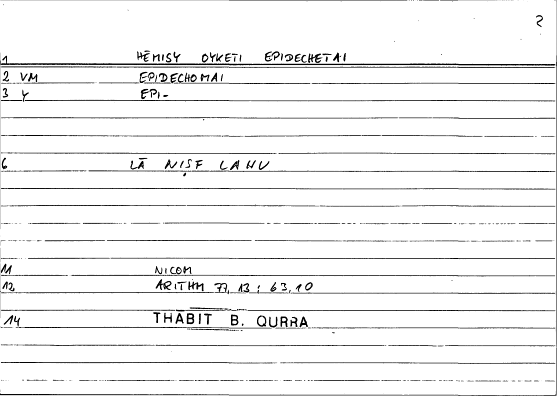 2
1 HĒMISY OYKETI EPIDECHETAI
2 VM EPIDECHOMAI
3 Y EPI-
6 LĀ NIṢF LAHU
11 NICOM
12 ARITHM 77, 13 : 63,10
14 THĀBIT B. QURRA